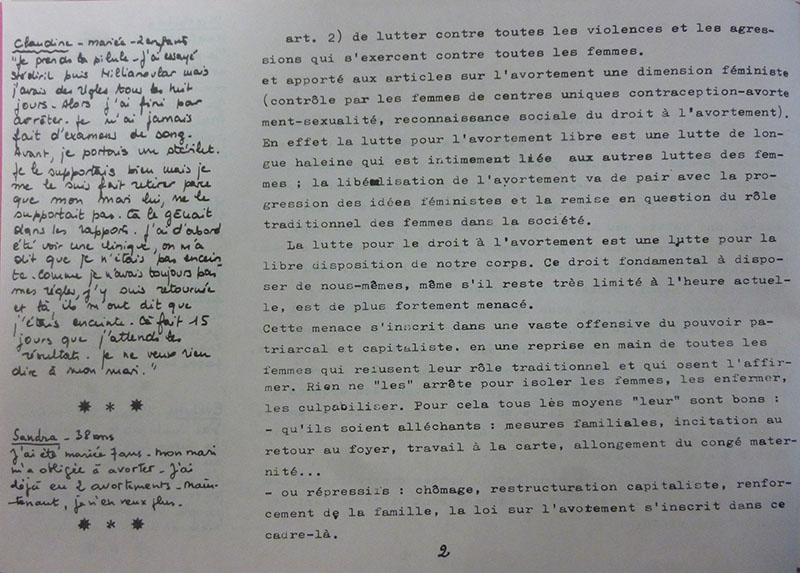 Claudine - mariée - 2 enfants
"Je prends la pilule - j'ai essayé
Stediril puis Millianovlar mais
j'avais des règles tous les huit
jours. Alors j'ai fini par
arrêter. Je n'ai jamais
fait d'examens de sang.
Avant, je portais un stérilet.
Je le supportais bien mais je
me le suis fait retirer parce
que mon mari lui, ne le
supportait pas. Ca le gênait
dans les rapports. J'ai d'abord
été voir une clinique, on m'a
dit que je n'étais pas encein
te. Comme je n'avais toujours pas
mes règles, j'y suis retournée
et là, ils m'ont dit que
j'étais enceinte. Ca fait 15
jours que j'attends les
résultats. Je ne veux rien
dire à mon mari."
* * *
Sandra - 38 ans
J'ai été mariée 7 ans - mon mari
m'a obligée à avorter - J'ai
déjà eu 2 avortements - Main-
tenant, je n'en veux plus.
* * *
art. 2) de lutter contre toutes les violences et les agres-
sions qui s'exercent contre toutes les femmes.
et apporté aux articles sur l'avortement une dimension féministe
(contrôle par les femmes de centres uniques contraception-avorte
ment-sexualité, reconnaissance sociale du droit à l'avortement).
En effet la lutte pour l'avortement libre est une lutte de lon-
gue haleine qui est intimement liée aux autres luttes des fem-
mes ; la libéralisation de l'avortement va de pair avec la pro-
gression des idées féministes et la remise en question du rôle
traditionnel des femmes dans la société.
La lutte pour le droit à l'avortement est une lutte pour la
libre disposition de notre corps. Ce droit fondamental à dispo-
ser de nous-mêmes, même s'il reste très limité à l'heure actuel-
le, est de plus fortement menacé.
Cette menace s'inscrit dans une vaste offensive du pouvoir pa-
triarcal et capitaliste. en une reprise en main de toutes les
femmes qui refusent leur rôle traditionnel et qui osent l'affir-
mer. Rien ne "les" arrête pour isoler les femmes, les enfermer,
les culpabiliser. Pour cela tous les moyens "leur" sont bons :
- qu'ils soient alléchants : mesures familiales, incitation au
retour au foyer, travail à la carte, allongement du congé mater-
nité...
- ou répressifs : chômage, restructuration capitaliste, renfor-
cement de la famille, la loi sur l'avotement s'inscrit dans ce
cadre-là.
2